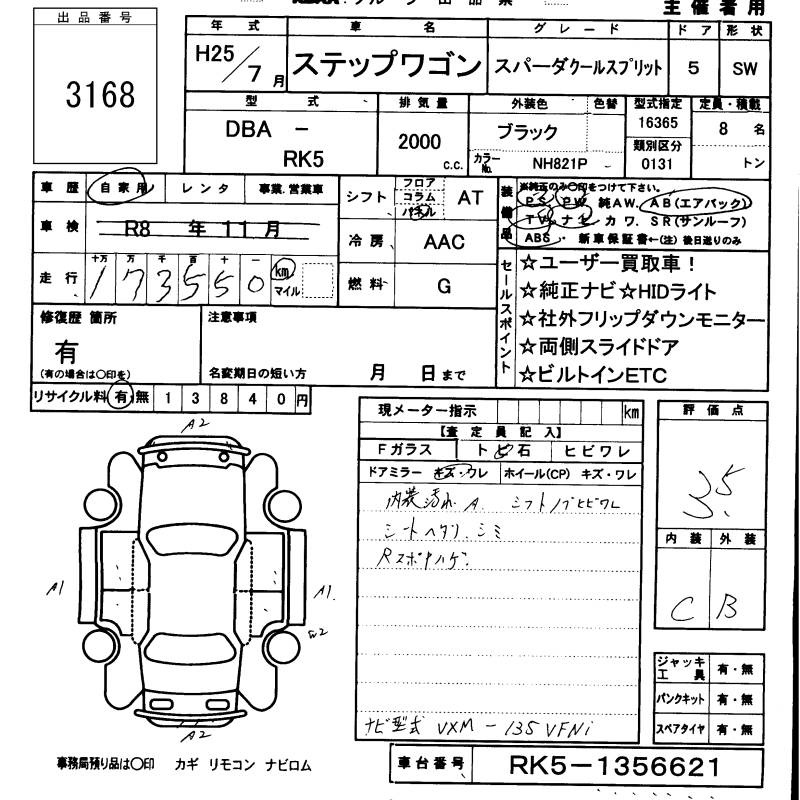 出品番号
3168
主催者用
年式 車名 グレード ドア 形状
H25/7月 ステップワゴン スパーダクールスプリット 5 SW
型式 排気量 外装色 色替 型式指定 定員・積載
DBA - RK5 2000 c.c. ブラック 16365 8名
カラーNo. NH821P 類別区分 0131 トン
車歴 自家用 レンタ 事業.営業車
車検 R8年11月
走行 十万 万 千 百 十 一
173550 km マイル
シフト フロア コラム パネル AT
冷房 AAC
燃料 G
装備品
※純正のみ○印をつけて下さい。
PS PW 純AW. AB(エアバック)
TV ナビ カワ. SR(サンルーフ)
ABS 新車保証書←(注)後日送りのみ
セールスポイント
☆ユーザー買取車!
☆純正ナビ☆HIDライト
☆社外フリップダウンモニター
☆両側スライドドア
☆ビルトインETC
修復歴 箇所
有
(有の場合は○印を)
注意事項
名変期日の短い方 月 日まで
リサイクル料 有 無 13840円
現メーター指示 km
【査定員記入】
Fガラス トビ石 ヒビワレ
ドアミラー キズ・ワレ ホイール(CP) キズ・ワレ
内装汚れ A. シフトノブヒビワレ
シートヘタリ. シミ
ナビ型式 VXM-135VFNi
評価点
3.5
内装 外装
C B
ジャッキ工具 有・無
パンクキット 有・無
スペアタイヤ 有・無
A2
A1
A1.
A2
事務局預り品は○印 カギ リモコン ナビロム
車台番号 RK5-1356621